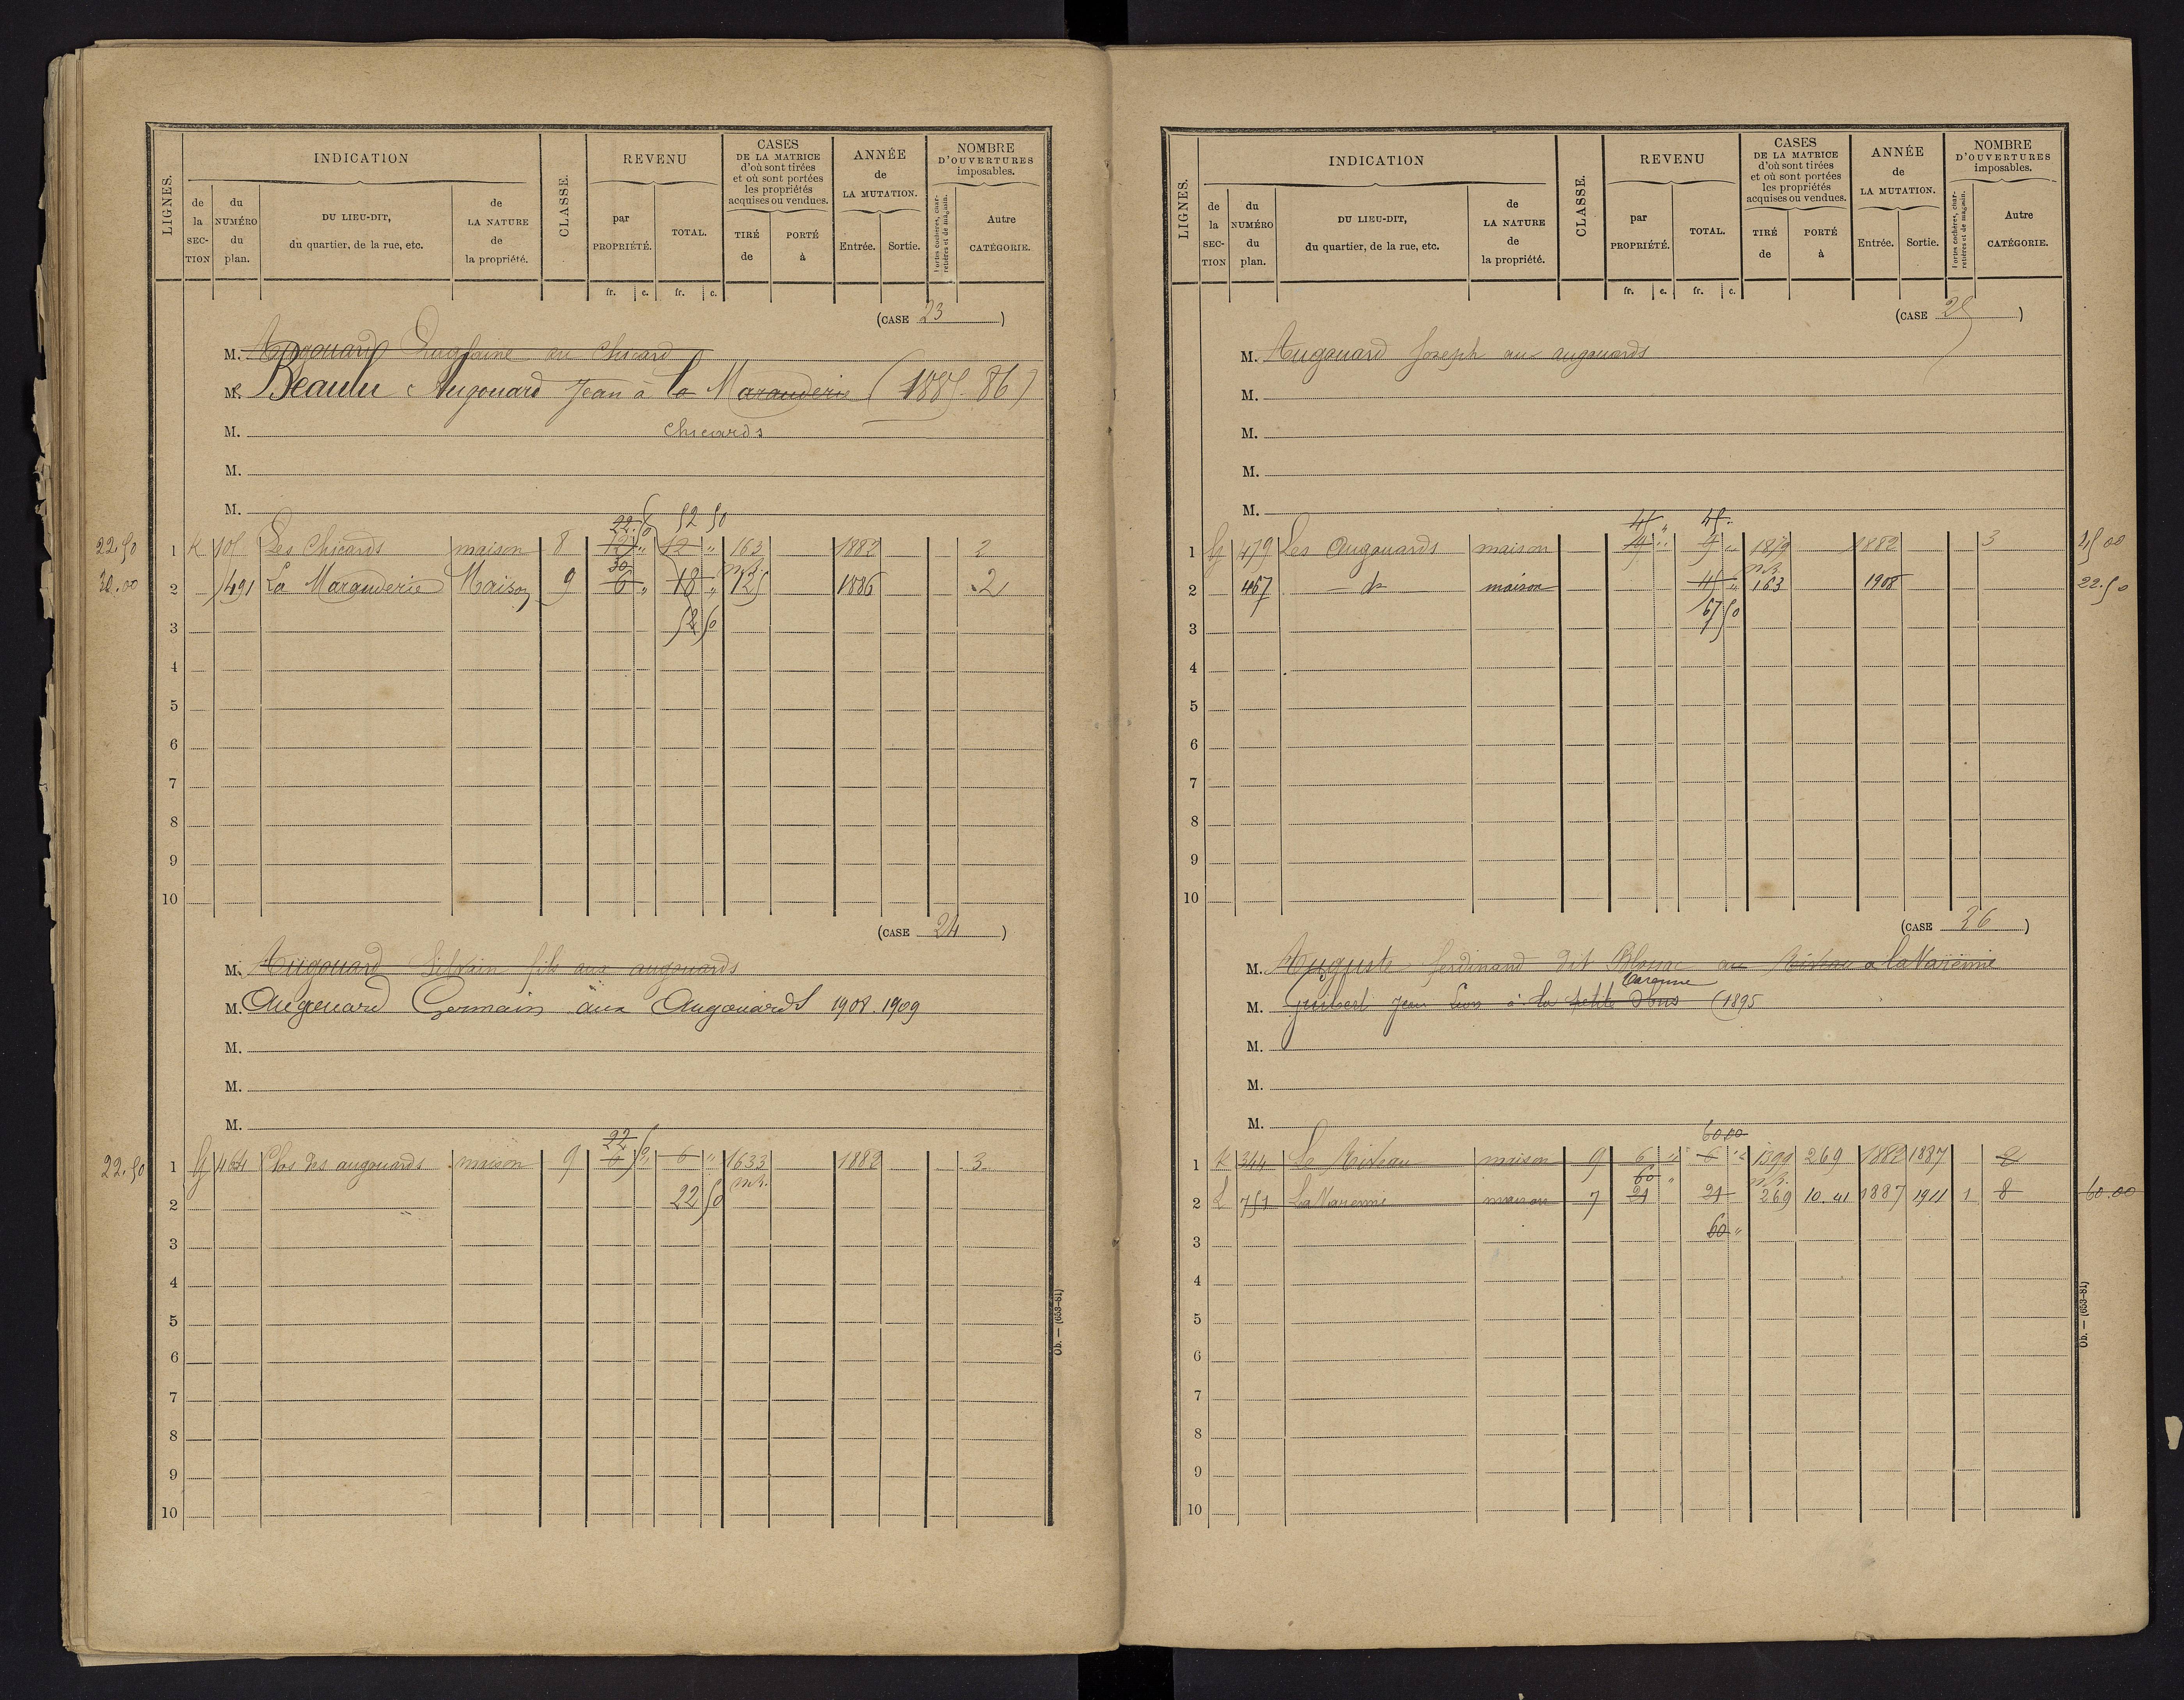 LIGNES.
INDICATION
CLASSE.
REVENU
CASES
DE LA MATRICE
d'où sont tirées
et où sont portées
les propriétés
acquises ou vendues.
ANNÉE
de
LA MUTATION.
NOMBRE
D'OUVERTURES
imposables.
de la SECTION
du NUMÉRO du plan.
DU LIEU-DIT,
du quartier, de la rue, etc.
de LA NATURE de la propriété.
par PROPRIÉTÉ.
TOTAL.
TIRÉ de
PORTÉ à
Entrée.
Sortie.
Portes cochères, charretières et de magasin.
Autre CATÉGORIE.
fr. c. fr. c.
(CASE 23 )
M. Augouard au Chicard
M. Beaulu Augouard Jean à la Marauderie (1885-86)
M. Chicards
M.
M.
22.50 52 50
22.50 1 K Les Chicards maison 8 12 " 12 " 163 1882 2
30
30.00 2 1491 La Marauderie Maison 9 6 " 18 " 125 1886 2
3 52 50
4
5
6
7
8
9
10
(CASE 24 )
M. Augouard Silvain fils aux augouards
M. Augouard Germain aux Augouards 1908.1909
M.
M.
M.
22.50
22.50 1 G 464 Clos des augouards maison 9 6 6 " 1633 1882 3
2 22 50
3
4
5
6
7
8
9
10
Ob. — (653-81)
LIGNES.
INDICATION
CLASSE.
REVENU
CASES
DE LA MATRICE
d'où sont tirées
et où sont portées
les propriétés
acquises ou vendues.
ANNÉE
de
LA MUTATION.
NOMBRE
D'OUVERTURES
imposables.
de la SECTION
du NUMÉRO du plan.
DU LIEU-DIT,
du quartier, de la rue, etc.
de LA NATURE de la propriété.
par PROPRIÉTÉ.
TOTAL.
TIRÉ de
PORTÉ à
Entrée.
Sortie.
Portes cochères, charretières et de magasin.
Autre CATÉGORIE.
fr. c. fr. c.
(CASE 25 )
M. Augouard Joseph aux augouards
M.
M.
M.
M.
45 " 45 "
1 G 479 Les Augouards maison 1879 1882 3 45 00
2 467 do maison 45 " 163 1908 22.50
3 67 50
4
5
6
7
8
9
10
(CASE 26 )
M. Auguste ferdinand dit Blossac au à la Varenne
Varenne
M. Guibert Jean Léon à la petite (1895
M.
M.
M.
60.00
1 K 344 maison 9 6 " 6 " 1399 269 1882 1887 2
60 "
2 L 751 La Varenne maison 7 21 21 269 10.41 1887 1911 1 8 60.00
3 60 "
4
5
6
7
8
9
10
Ob. — (653-81)